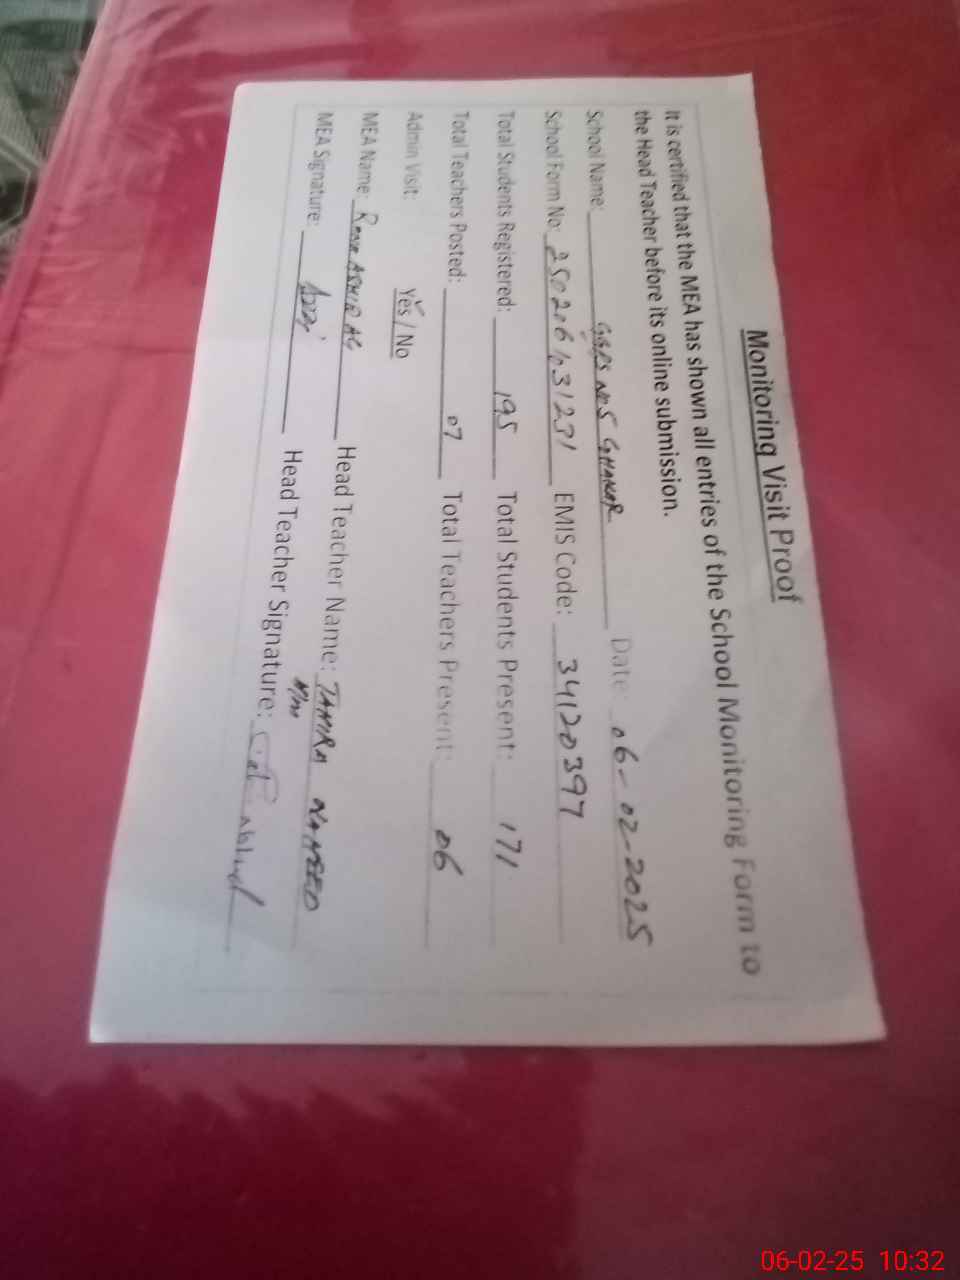 Monitoring Visit Proof
It is certified that the MEA has shown all entries of the School Monitoring Form to
the Head Teacher before its online submission.
School Name: GGPS No 5 GHAKAR Date: 06-02-2025
School Form No: EMIS Code: 34120397
Total Students Registered: 195 Total Students Present: 171
Total Teachers Posted: 07 Total Teachers Present: 06
Admin Visit: Yes / No
MEA Name: Head Teacher Name: TAHIRA NAHEED
MEA Signature: Head Teacher Signature:
06-02-25 10:32